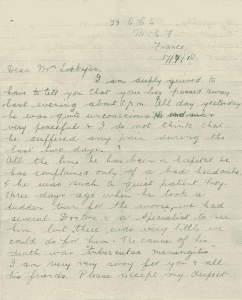 B. E. F.
France.
Dear Mrs
I am deeply grieved to
have to tell you that your boy passed away
last evening about 8 p.m. All day yesterday
he was quite unconscious
very peaceful & I do not think that
he suffered any pain during the
last two days.
All the time he has been in hospital he
has complained only of a bad headache
& he was such a quiet patient boy.
Three days ago when he took a
sudden turn for the worse, we had
several Doctors & a specialist to see
him, but there was very little we
could do for him. The cause of his
death was "tubercular meningitis"
I am very very sorry for you & all
his friends. Please accept my deepest